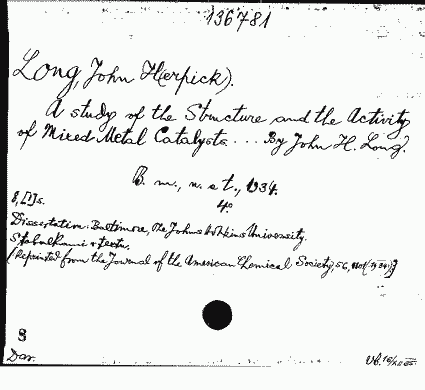 136781
Long, John H(erpick).
A study of the Structure and the Activity
of Mixed Metal Catalysts ... By John H. Long.
B. m., n. s t., 1934.
4°
8, [1] s.
Dissertation. Baltimore, The Johns Hopkins University.
i texte.
(Reprinted from the Journal of the American Chemical Society, 56,
8
Dar.